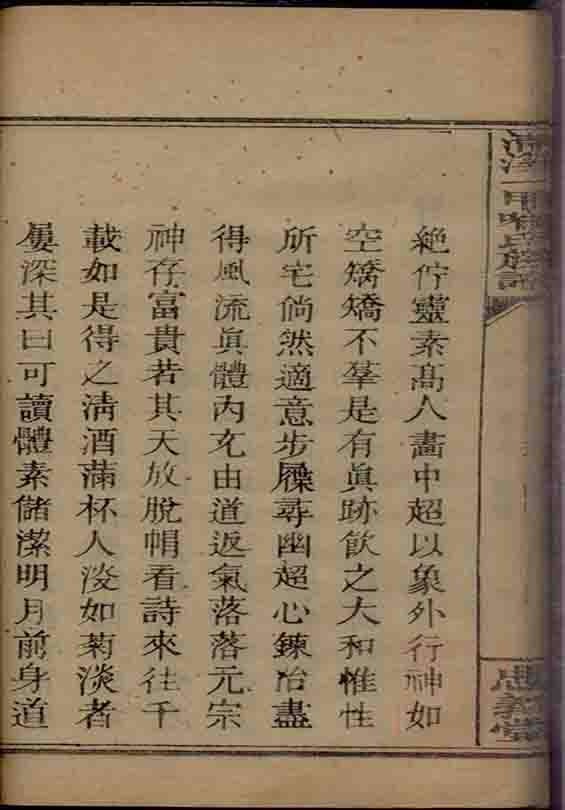 絶佇靈素髙人畵中超以象外行神如
空矯矯不羣是有眞跡飮之大和惟性
所宅倘然適意步屧尋幽超心鍊冶盡
得風流眞體內充由道返氣落落元宗
神存富貴若其天放脫帽看詩來往千
載如是得之淸酒滿杯人淡如菊淡者
屢深其曰可讀體素儲潔明月前身道
氏族譜